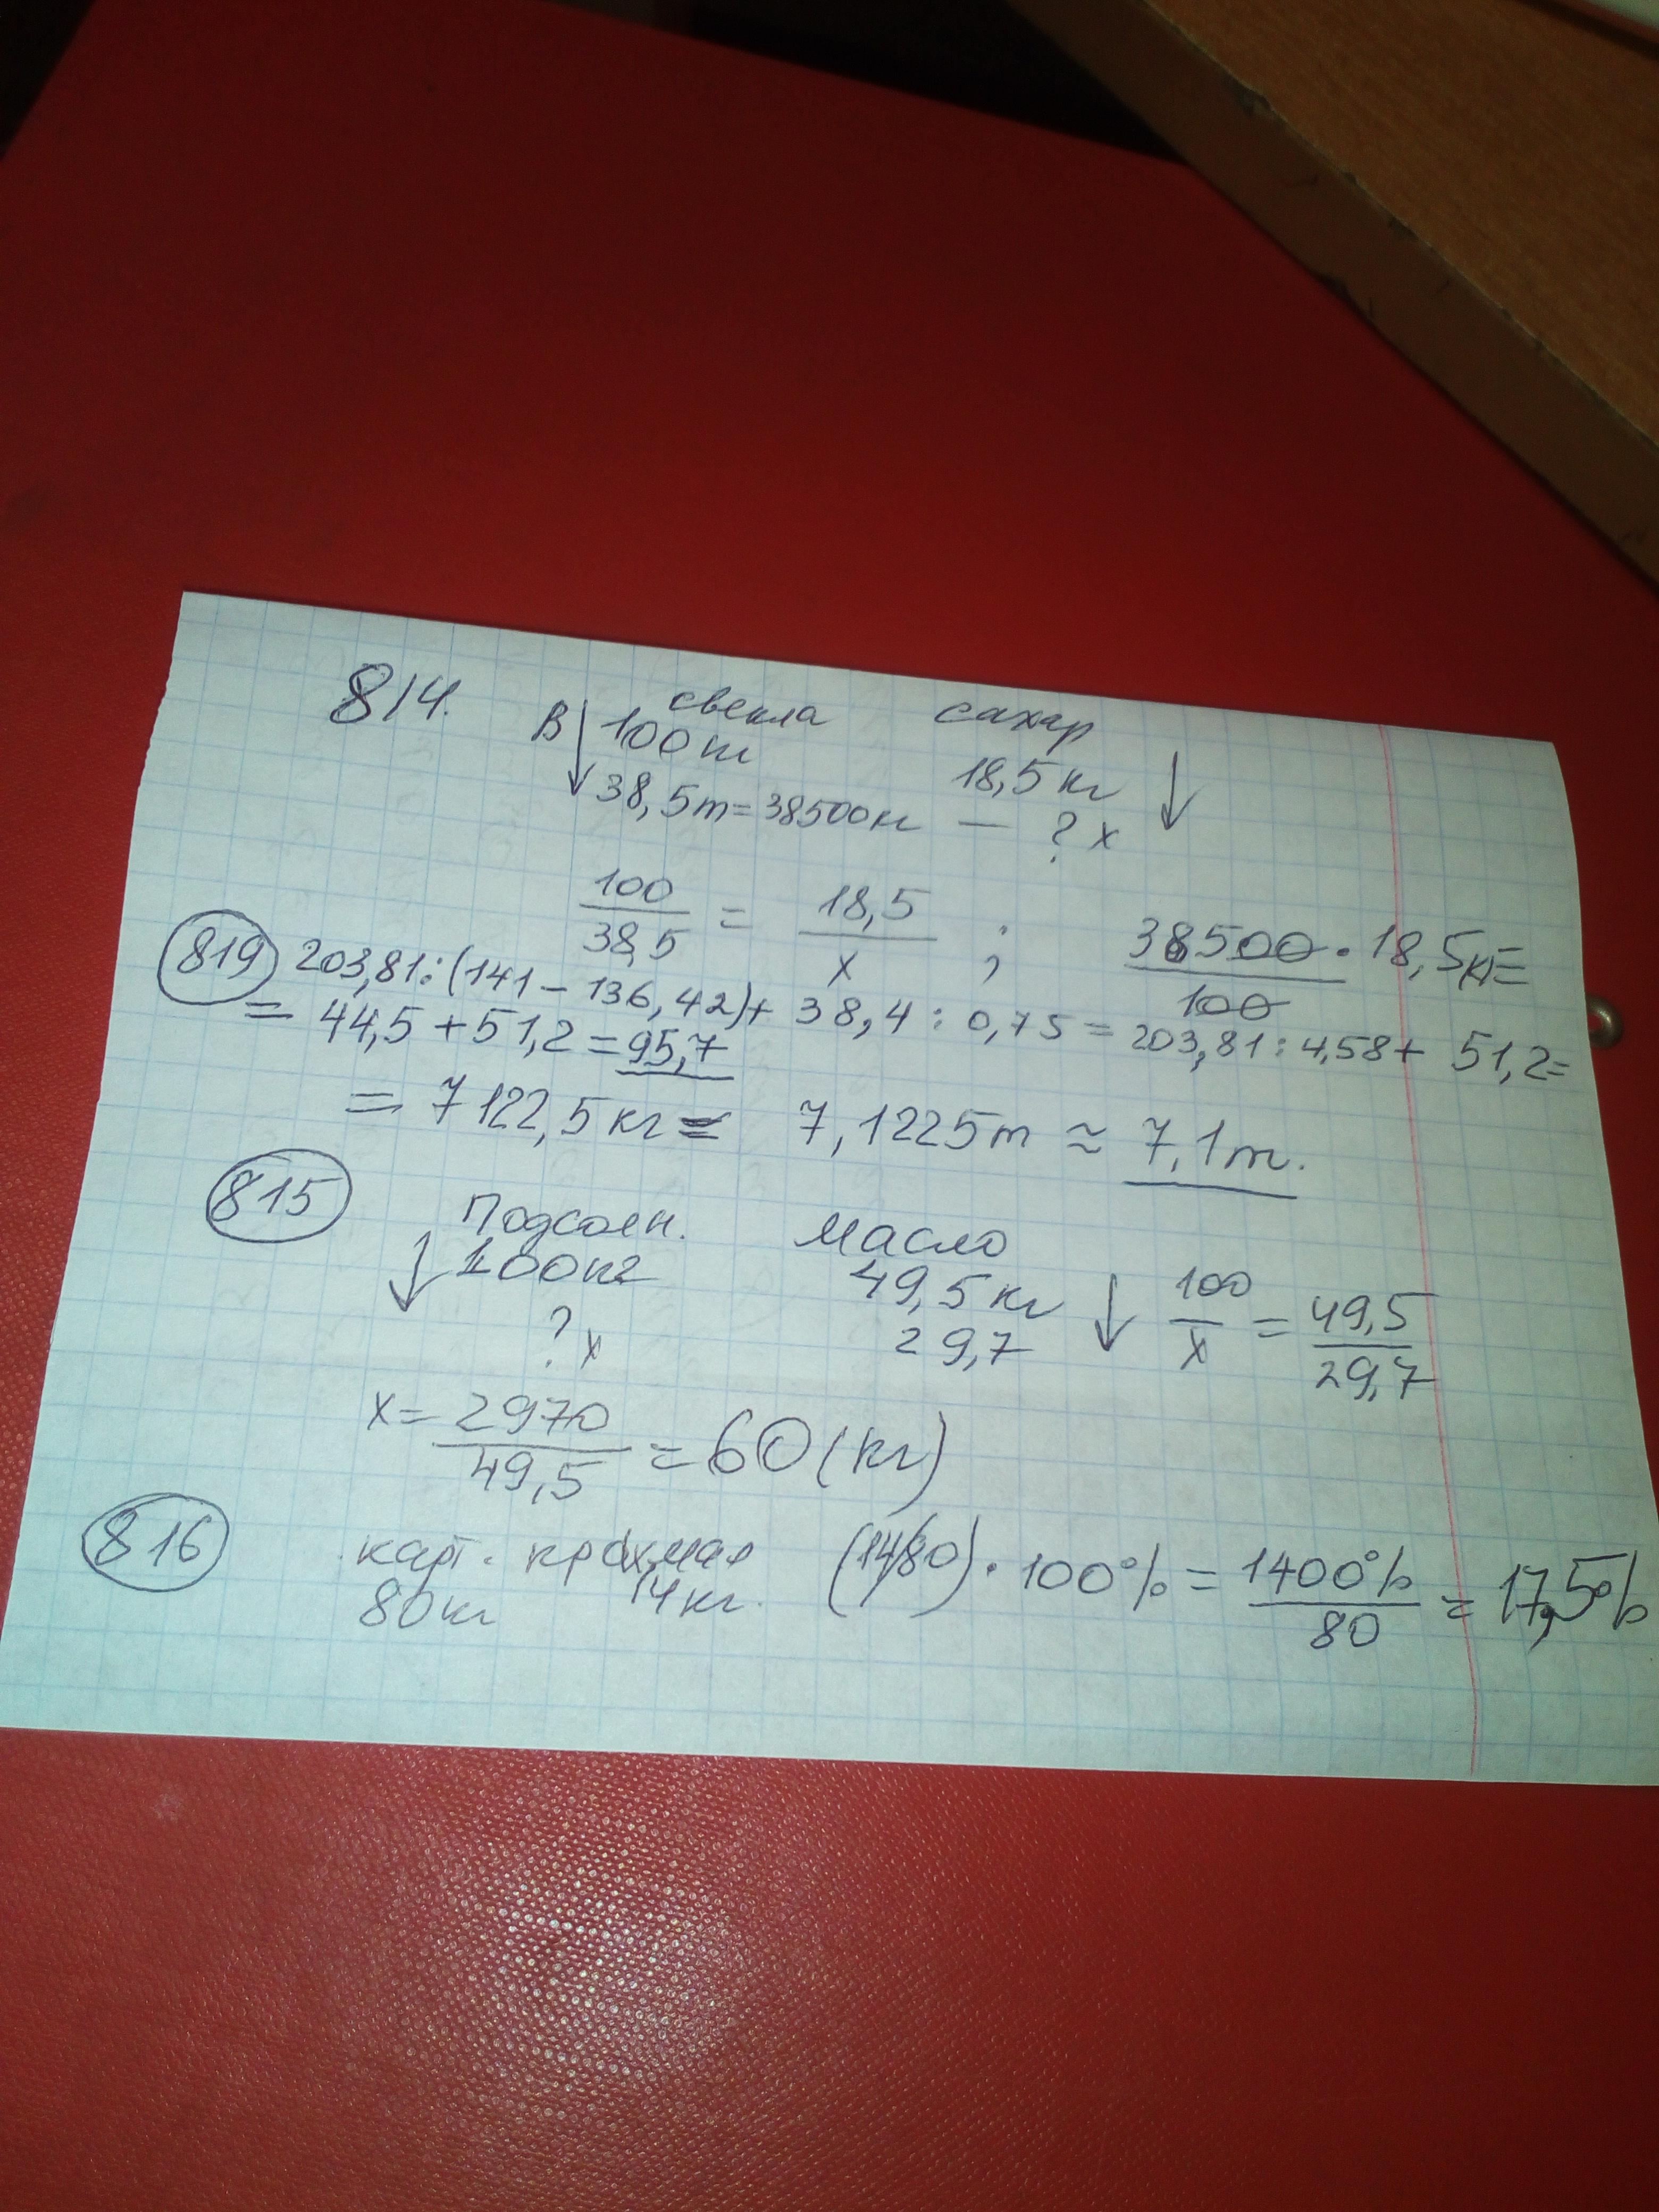 814. свекла сахар
В 100 кг 18,5 кг
38,5т = 38500кг — ? х
100/38,5 = 18,5/х ; 38500 · 18,5кг/100 =
819 203,81:(141 – 136,42)+ 38,4 : 0,75 = 203,81 : 4,58 + 51,2 =
= 44,5 + 51,2 = 95,7
= 7122,5 кг = 7,1225т ≈ 7,1т.
815 Подсолн. Масло
100кг 49,5 кг 100/х = 49,5/29,7
? х 29,7
х = 2970/49,5 = 60 (кг)
816 карт. крахмал (14/80) · 100% = 1400%/80 = 17,5%
80кг 14кг.